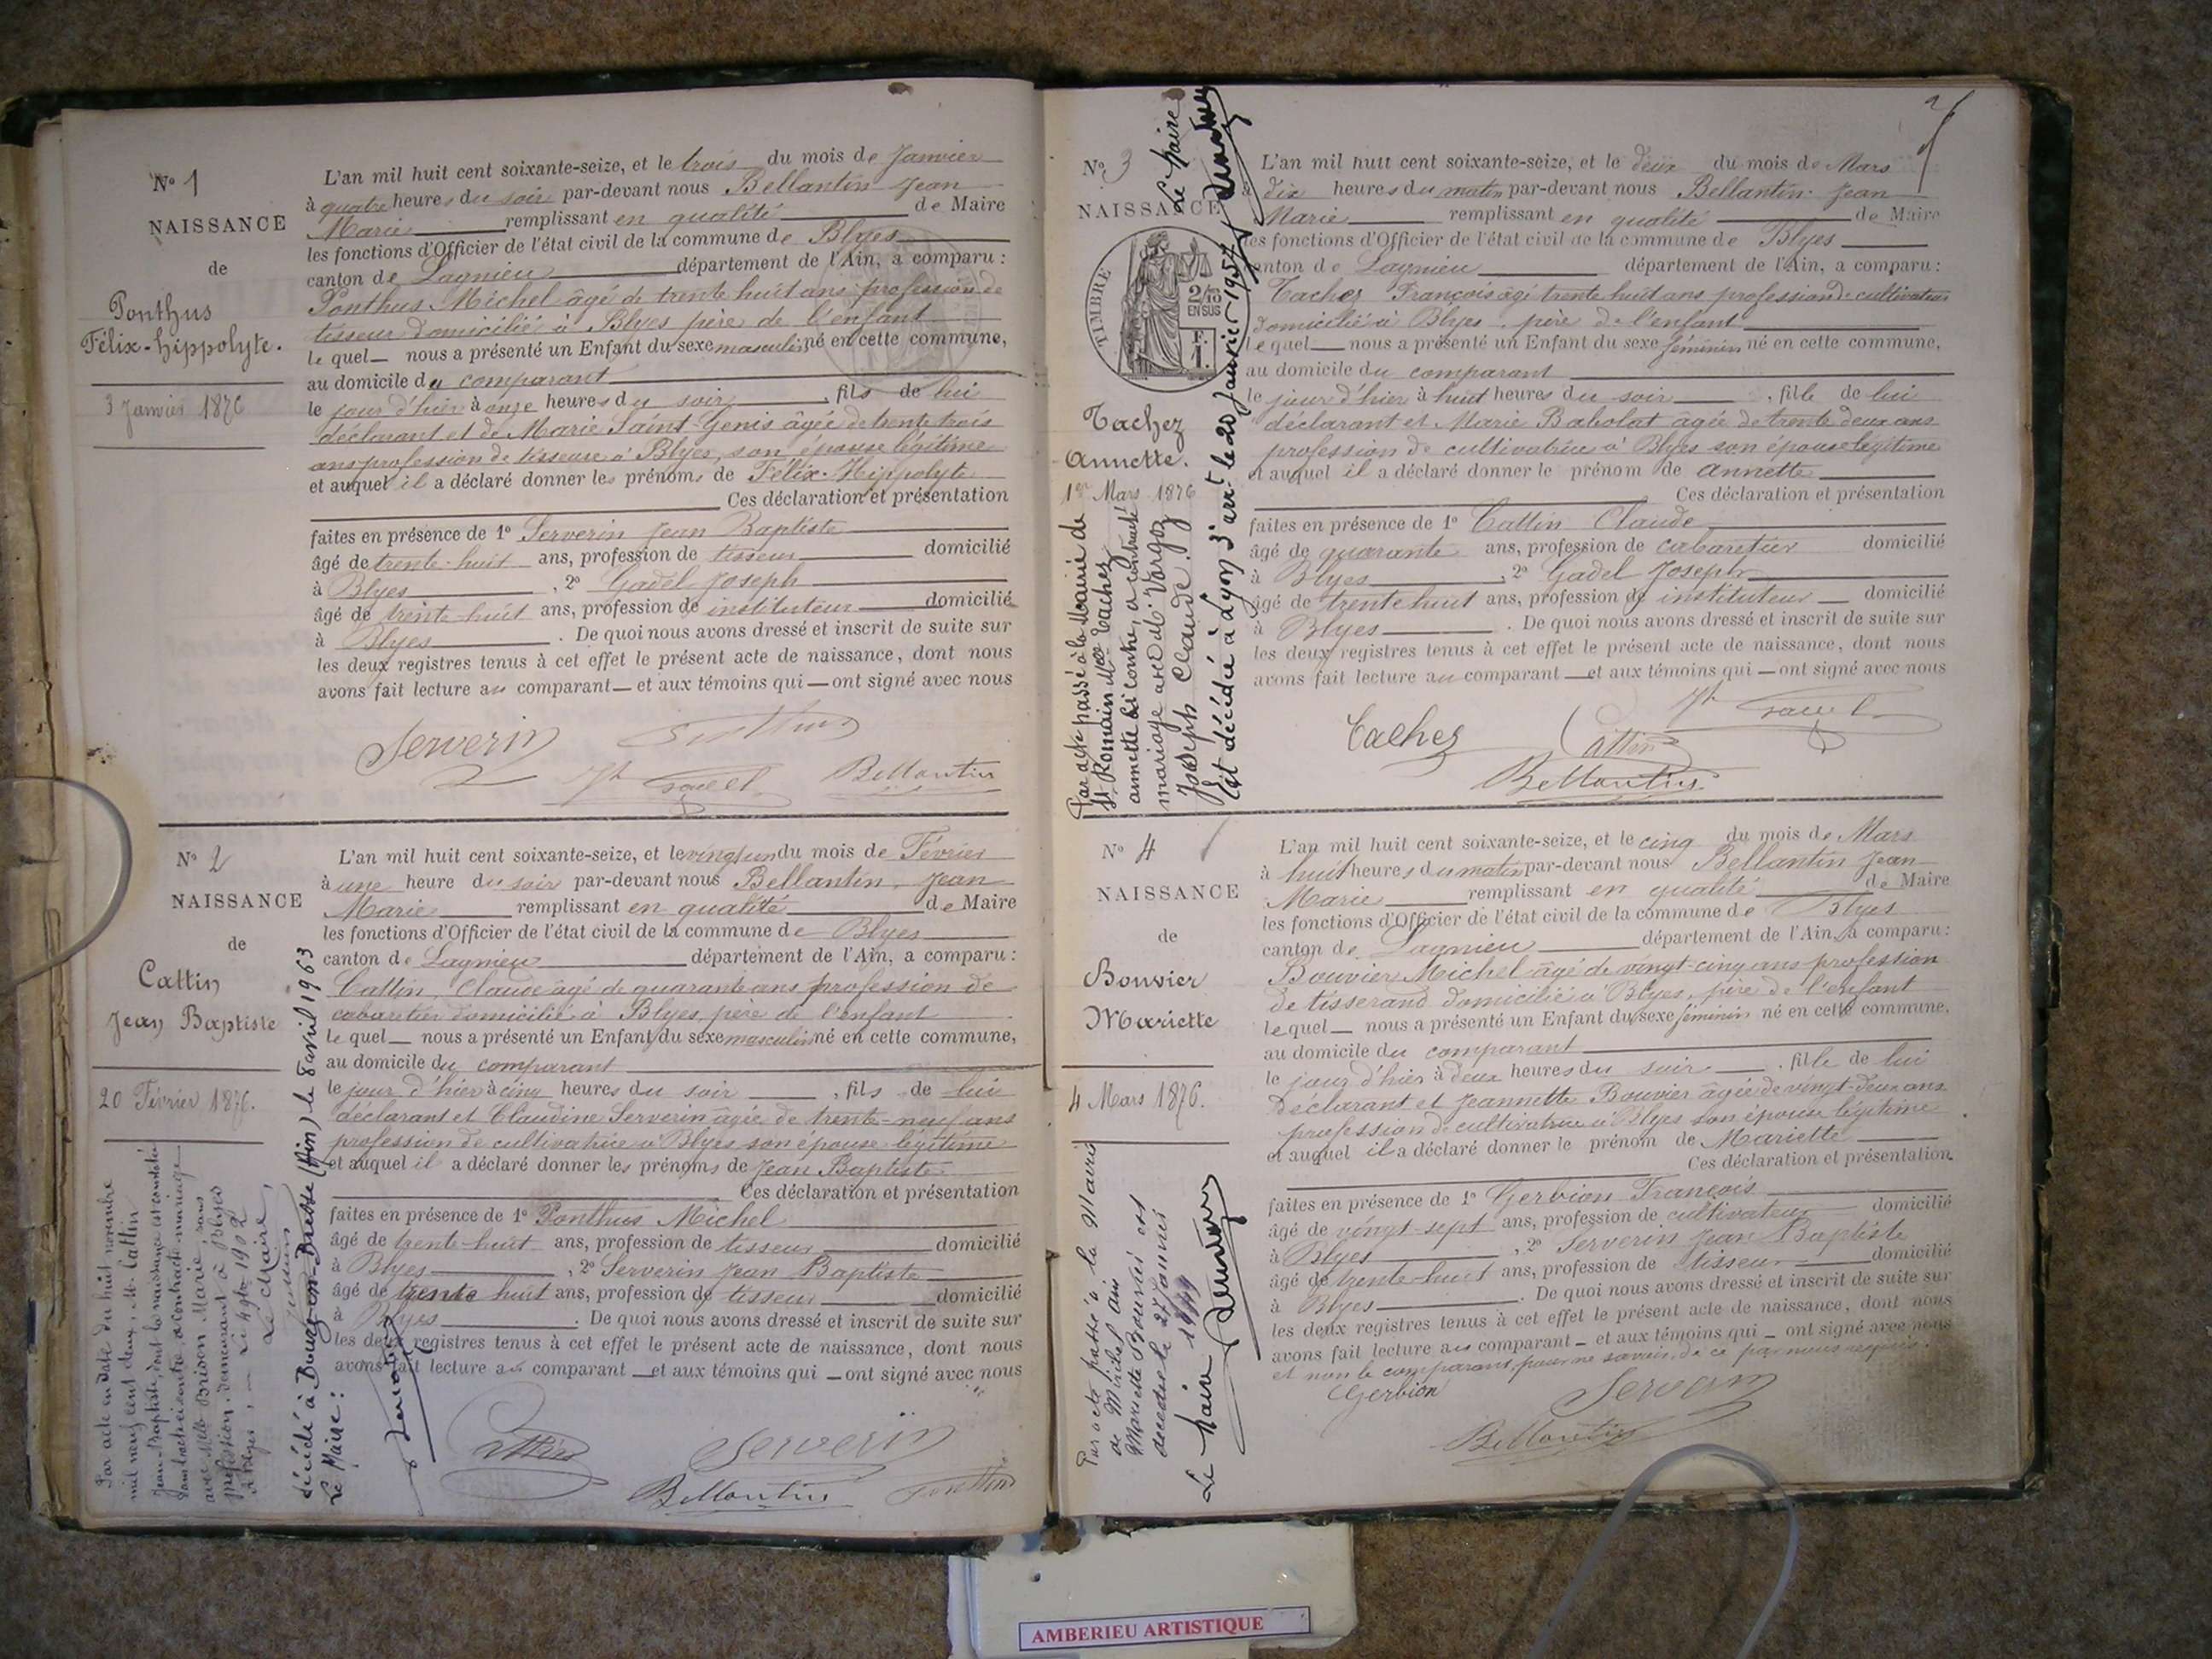 N° 1
NAISSANCE
de
Ponthus
Félix-hippolyte.
3 Janvier 1876
L'an mil huit cent soixante-seize, et le trois du mois de Janvier
à quatre heures du soir par-devant nous Bellantin Jean
Marie remplissant en qualité de Maire
les fonctions d'Officier de l'état civil de la commune de Blyes
canton de Lagnieu département de l'Ain, a comparu :
Ponthus Michel âgé de trente huit ans profession de
tisseur domicilié à Blyes père de l'enfant
le quel nous a présenté un Enfant du sexe masculin né en cette commune,
au domicile du comparant
le jour d'hier à onze heures du soir, fils de lui
déclarant et de Marie Saint-Genis âgée de trente trois
ans profession de tisseuse à Blyes, son épouse légitime
et auquel il a déclaré donner les prénoms de Félix-Hippolyte
Ces déclaration et présentation
faites en présence de 1° Serverin Jean Baptiste
âgé de trente-huit ans, profession de tisseur domicilié
à Blyes, 2° Gadel Joseph
âgé de trente-huit ans, profession de instituteur domicilié
à Blyes. De quoi nous avons dressé et inscrit de suite sur
les deux registres tenus à cet effet le présent acte de naissance, dont nous
avons fait lecture au comparant et aux témoins qui ont signé avec nous
Serverin Ponthus
Jh Gadel Bellantin
N° 2
NAISSANCE
de
Cattin
Jean Baptiste
20 Février 1876.
Par acte en date du huit novembre
mil neuf cent deux, M. Cattin
Jean-Baptiste, dont la naissance est constatée
dans l'acte ci-contre, a contracté mariage
avec Melle Brison Marie, sans
profession, demeurant à Blyes
à Blyes, 1902
Le Maire,
décédé à Bourg-en-Bresse (Ain) le 8 avril 1963
Le Maire :
L'an mil huit cent soixante-seize, et le vingt un du mois de Février
à une heure du soir par-devant nous Bellantin Jean
Marie remplissant en qualité de Maire
les fonctions d'Officier de l'état civil de la commune de Blyes
canton de Lagnieu département de l'Ain, a comparu :
Cattin, Claude âgé de quarante ans profession de
cabaretier domicilié à Blyes, père de l'enfant
le quel nous a présenté un Enfant du sexe masculin né en cette commune,
au domicile du comparant
le jour d'hier à cinq heures du soir, fils de lui
déclarant et Claudine Serverin âgée de trente-neuf ans
profession de cultivatrice à Blyes son épouse légitime
et auquel il a déclaré donner les prénoms de Jean Baptiste
Ces déclaration et présentation
faites en présence de 1° Ponthus Michel
âgé de trente-huit ans, profession de tisseur domicilié
à Blyes, 2° Serverin Jean Baptiste
âgé de trente huit ans, profession de tisseur domicilié
à Blyes. De quoi nous avons dressé et inscrit de suite sur
les deux registres tenus à cet effet le présent acte de naissance, dont nous
avons fait lecture au comparant et aux témoins qui ont signé avec nous
Cattin Serverin
Bellantin Ponthus
2
N° 3
NAISSANCE
TIMBRE
2/10
EN SUS
F.
1.
Tachez
Annette.
1er Mars 1876
Par acte passé à la Mairie de
St Romain Melle Tachez
annette ci contre, a contracté
mariage avec M. Vargoz
Joseph Claude.
Est décédée à Lyon 3e art le 20 Janvier 1957
Le Maire
L'an mil huit cent soixante-seize, et le deux du mois de Mars
à dix heures du matin par-devant nous Bellantin Jean
Marie remplissant en qualité de Maire
les fonctions d'Officier de l'état civil de la commune de Blyes
canton de Lagnieu département de l'Ain, a comparu :
Tachez François âgé trente huit ans profession de cultivateur
domicilié à Blyes, père de l'enfant
lequel nous a présenté un Enfant du sexe féminin né en cette commune,
au domicile du comparant
le jour d'hier à huit heures du soir, fille de lui
déclarant et Marie Babolat âgée de trente deux ans
profession de cultivatrice à Blyes son épouse légitime
et auquel il a déclaré donner le prénom de Annette
Ces déclaration et présentation
faites en présence de 1° Cattin Claude
âgé de quarante ans, profession de cabaretier domicilié
à Blyes, 2° Gadel Joseph
âgé de trente huit ans, profession de instituteur domicilié
à Blyes. De quoi nous avons dressé et inscrit de suite sur
les deux registres tenus à cet effet le présent acte de naissance, dont nous
avons fait lecture au comparant et aux témoins qui ont signé avec nous
Tachez Cattin Jh Gadel
Bellantin
N° 4
NAISSANCE
de
Bouvier
Mariette
4 Mars 1876.
Par acte passé à la Mairie
de
Mariette Bouvier est
décédée le 27 Janvier
Le Maire
L'an mil huit cent soixante-seize, et le cinq du mois de Mars
à huit heures du matin par-devant nous Bellantin Jean
Marie remplissant en qualité de Maire
les fonctions d'Officier de l'état civil de la commune de Blyes
canton de Lagnieu département de l'Ain, a comparu :
Bouvier Michel âgé de vingt-cinq ans profession
de tisserand domicilié à Blyes, père de l'enfant
lequel nous a présenté un Enfant du sexe féminin né en cette commune,
au domicile du comparant
le jour d'hier à deux heures du soir, fille de lui
déclarant et Jeannette Bouvier âgée de vingt-deux ans
profession de cultivatrice à Blyes son épouse légitime
et auquel il a déclaré donner le prénom de Mariette
Ces déclaration et présentation
faites en présence de 1° Gerbion François
âgé de vingt-sept ans, profession de cultivateur domicilié
à Blyes, 2° Serverin Jean Baptiste
âgé de trente-huit ans, profession de tisseur domicilié
à Blyes. De quoi nous avons dressé et inscrit de suite sur
les deux registres tenus à cet effet le présent acte de naissance, dont nous
avons fait lecture au comparant et aux témoins qui ont signé avec nous
et non le comparant pour ne savoir, de ce par nous requis.
Gerbion Serverin
Bellantin
AMBERIEU ARTISTIQUE